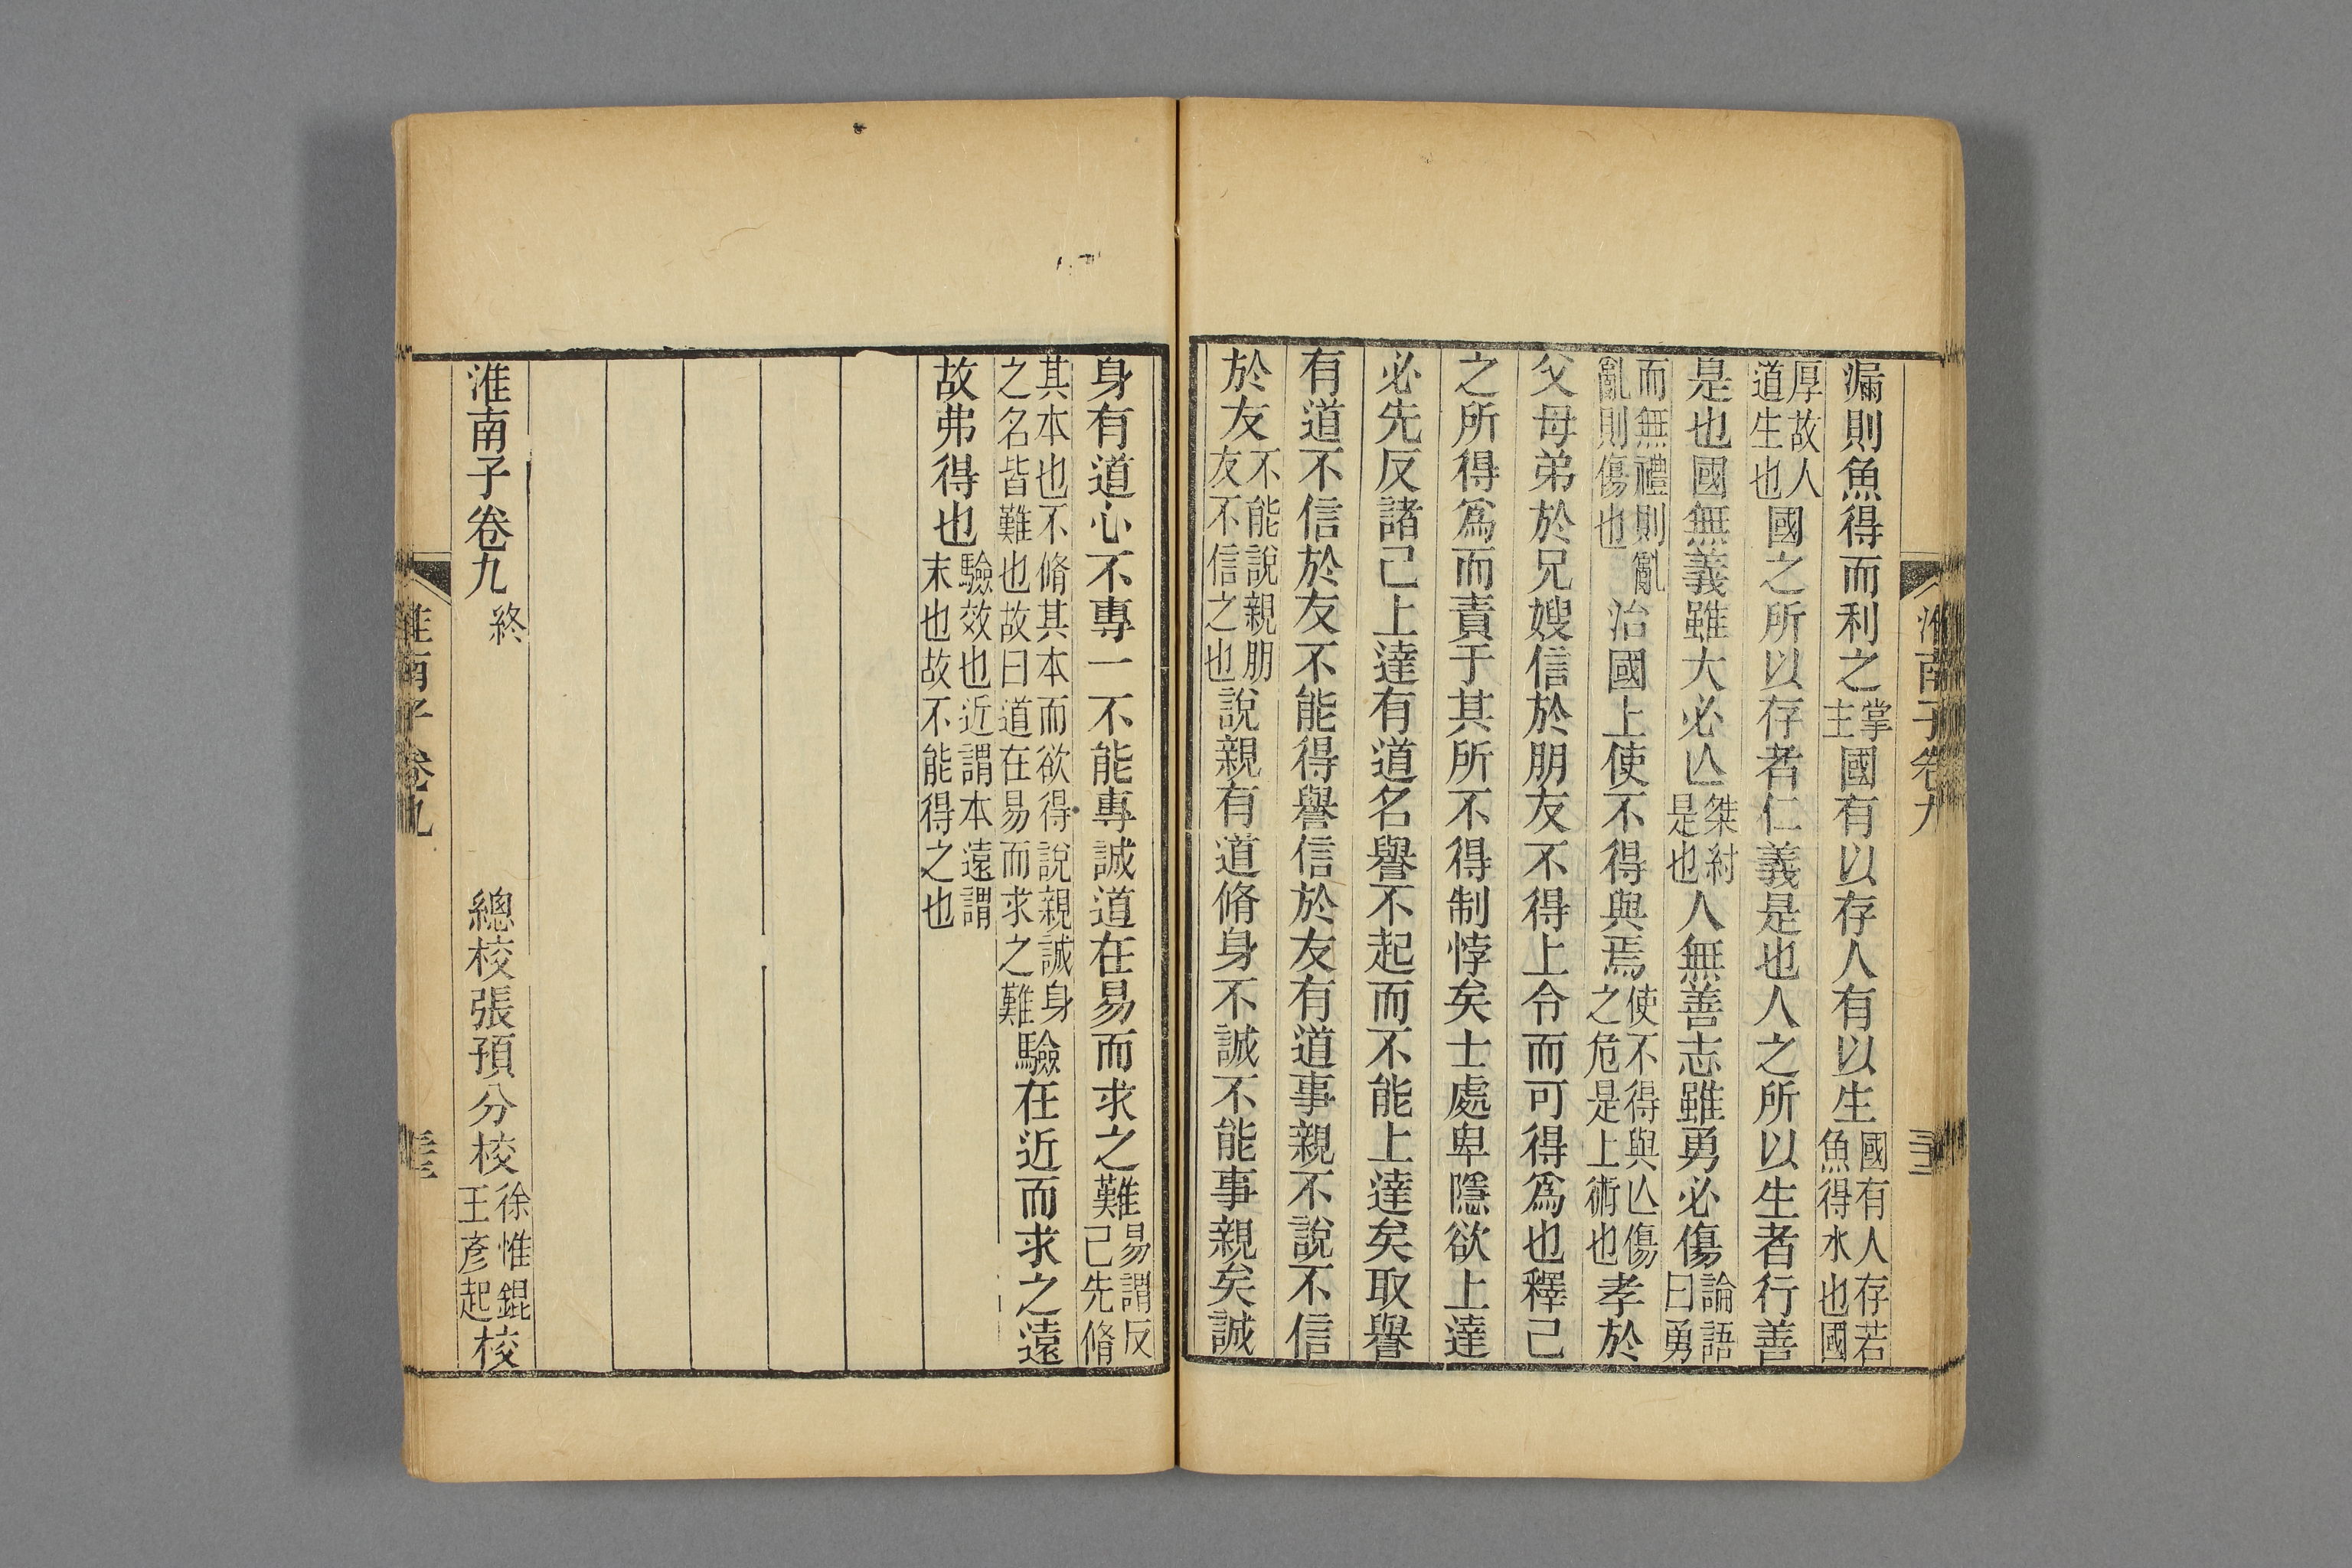 淮南子卷九
漏則魚得而利之掌主國有以存人有以生國有人存若魚得水也國
厚故人道生也國之所以存者仁義是也人之所以生者行善
是也國無義雖大必亾桀紂是也人無善志雖勇必傷論語曰勇
而無禮則亂亂則傷也治國上使不得與焉使不得與亾傷之危是上術也孝於
父母弟於兄嫂信於朋友不得上令而可得爲也釋己
之所得爲而責于其所不得制悖矣士處卑隱欲上達
必先反諸己上達有道名譽不起而不能上達矣取譽
有道不信於友不能得譽信於友有道事親不說不信
於友不能說親朋友不信之也說親有道脩身不誠不能事親矣誠
身有道心不專一不能專誠道在易而求之難易謂反己先脩
其本也不脩其本而欲得說親誠身之名皆難也故曰道在易而求之難驗在近而求之遠
故弗得也驗效也近謂本遠謂末也故不能得之也
淮南子卷九 終 總校張預分校徐惟錕王彥起校
淮南子卷九